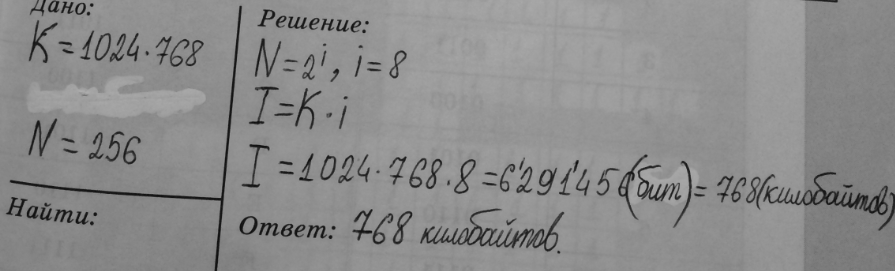 Дано:
K = 1024 · 768
N = 256
Найти:
Решение:
N = 2ⁱ, i = 8
I = K · i
I = 1024 · 768 · 8 = 6'291'456 (бит) = 768 (килобайтов)
Ответ: 768 килобайтов.